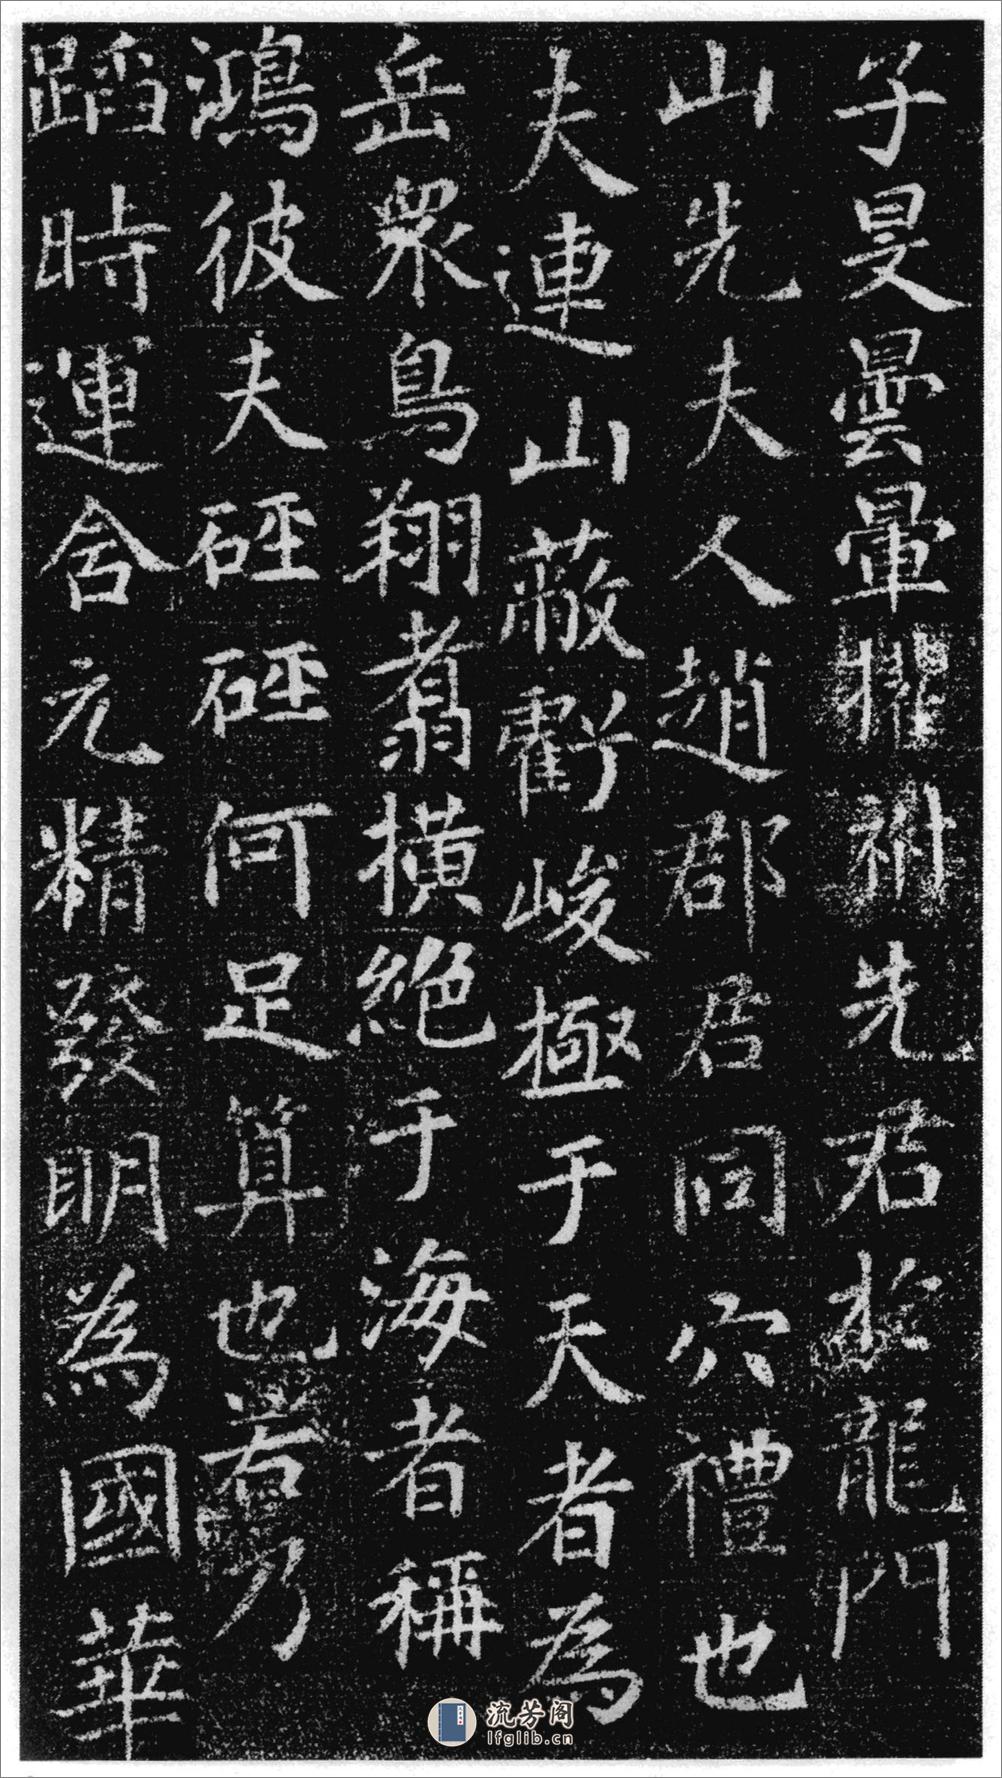 子旻曇暈擢祔先君於龍門
山先夫人趙郡君同穴禮也
夫連山蔽虧峻極于天者為
岳衆鳥翔翥橫絕于海者稱
鴻彼夫硜硜何足算也若乃
蹈時運含元精發明為國華
流芳阁
lfglib.cn